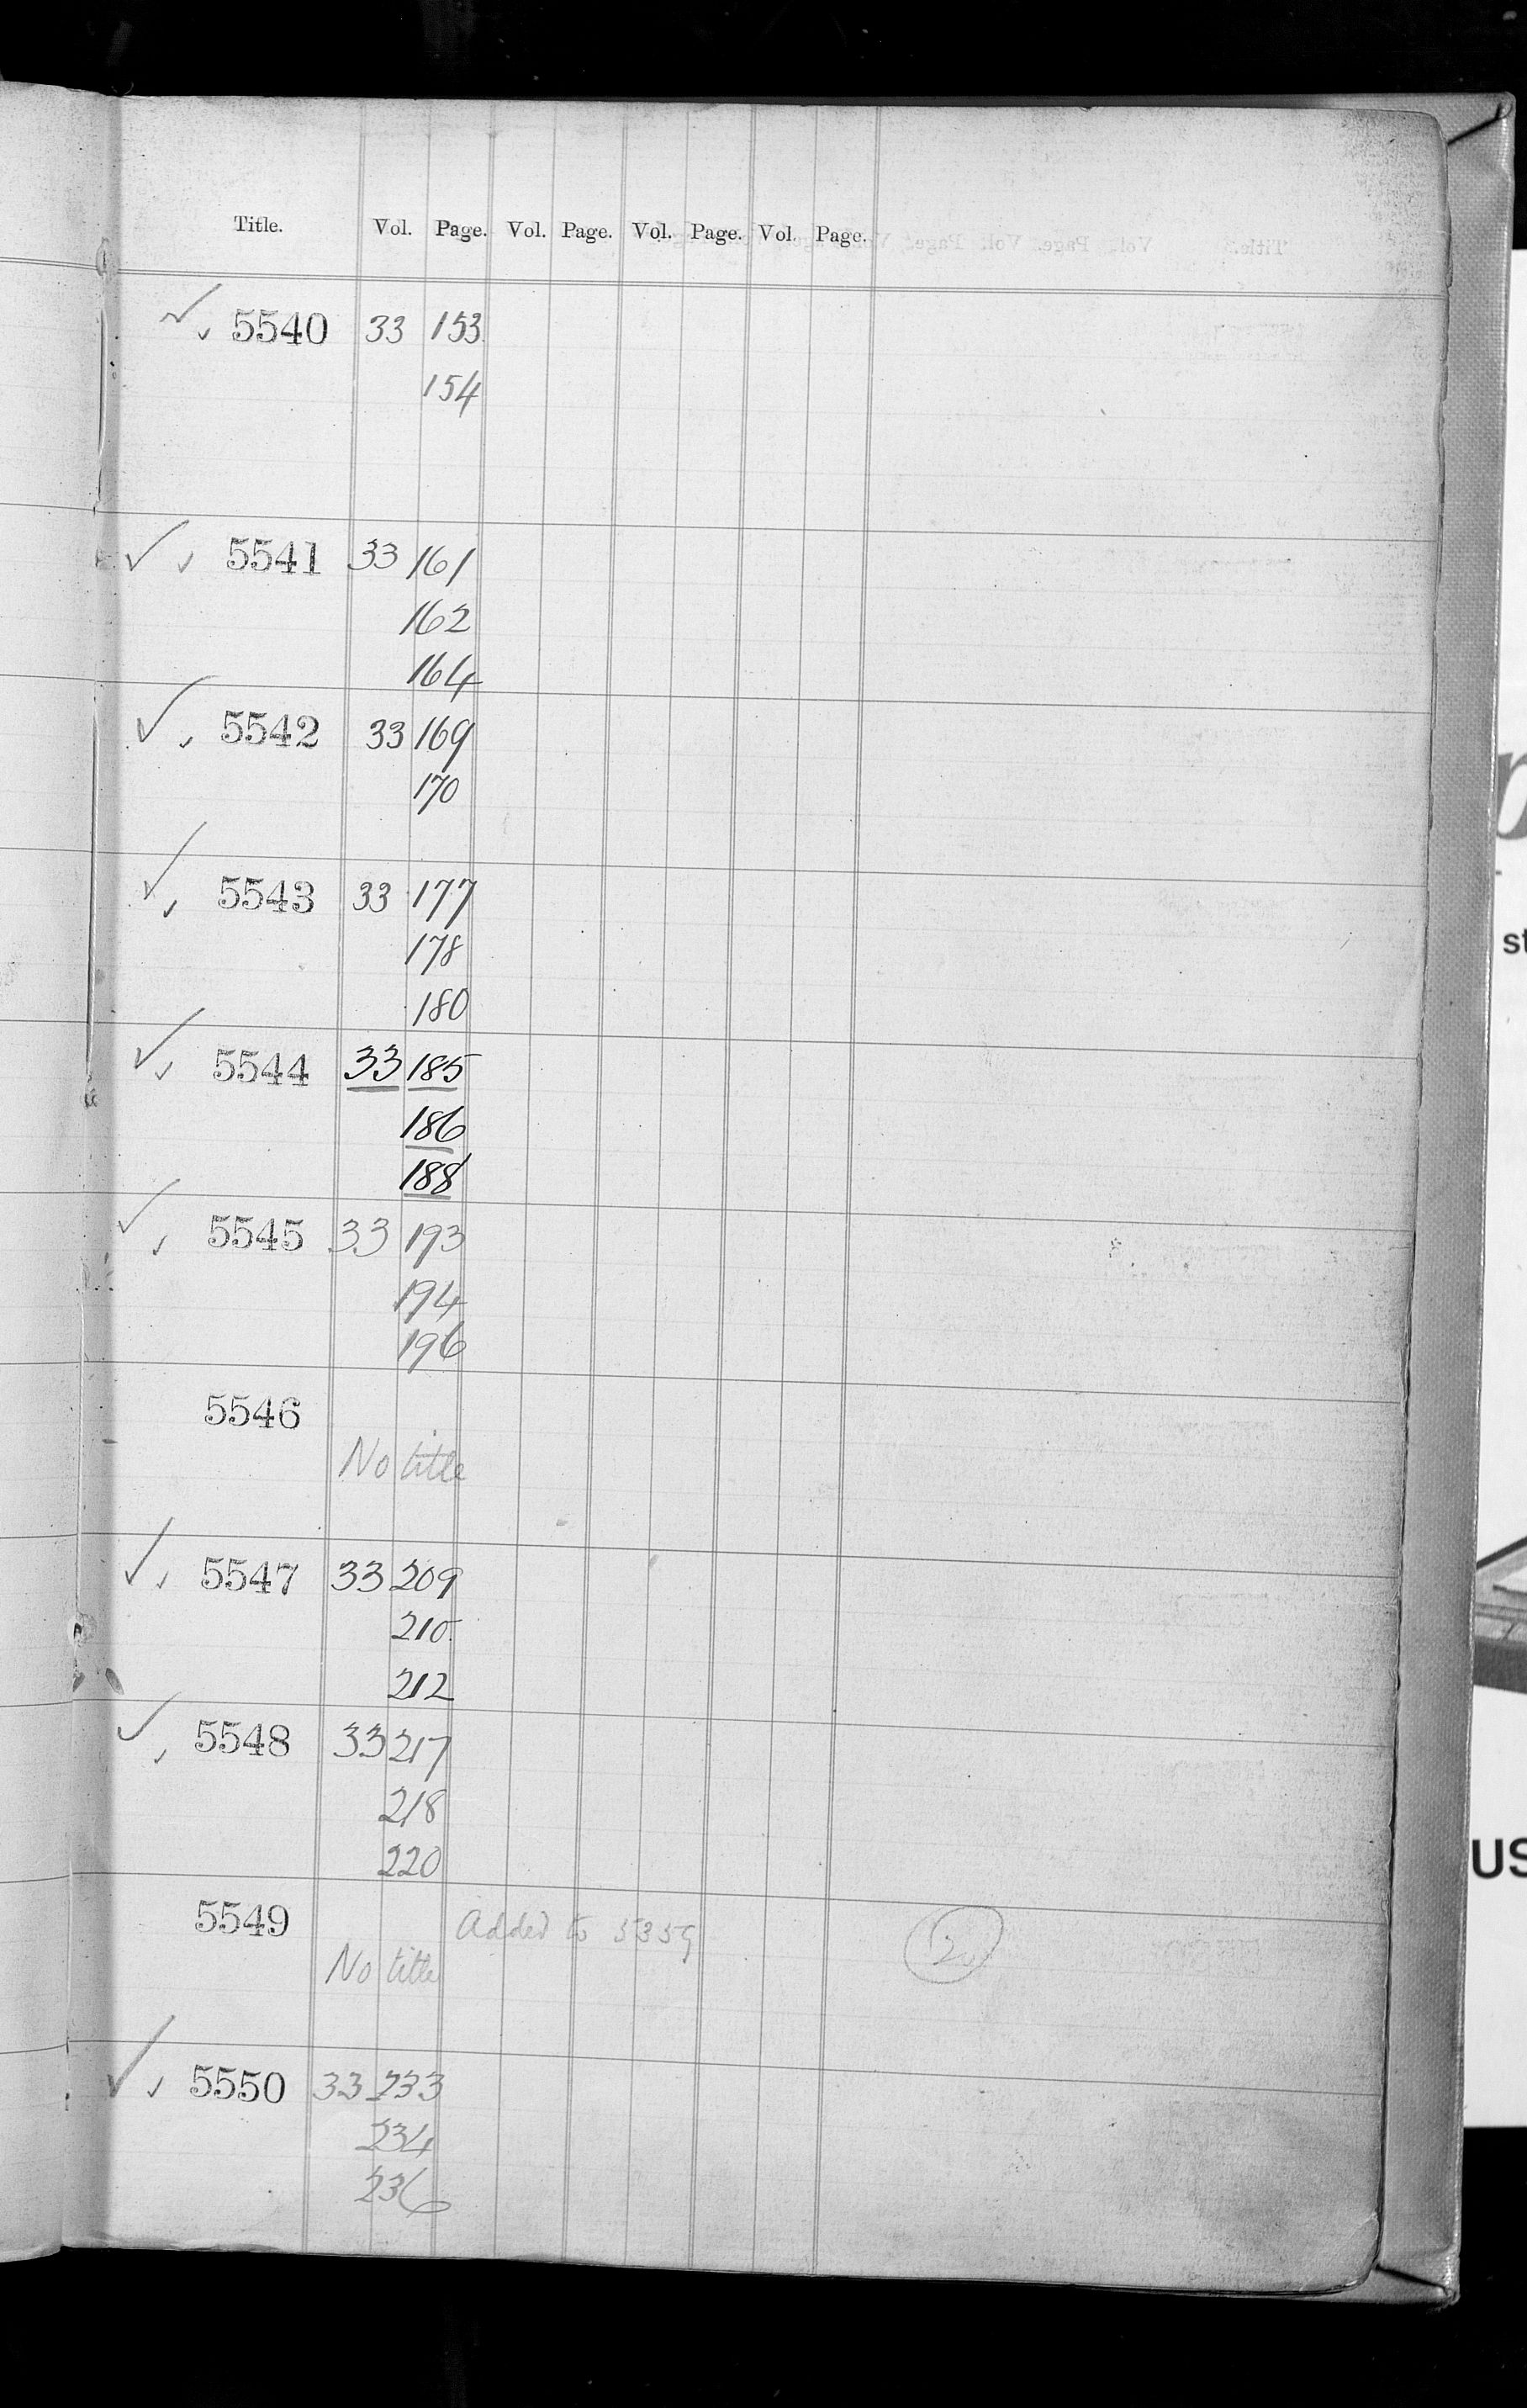 Title. Vol. Page. Vol. Page. Vol. Page. Vol. Page.
✓ ✓ 5540 33 153
154
✓ ✓ 5541 33 161
162
164
✓ ✓ 5542 33 169
170
✓ ✓ 5543 33 177
178
180
✓ ✓ 5544 33 185
186
188
✓ ✓ 5545 33 193
194
196
5546
No title
✓ ✓ 5547 33 209
210
212
✓ ✓ 5548 33 217
218
220
5549 Added to 5359
No title
✓ ✓ 5550 33 233
234
236